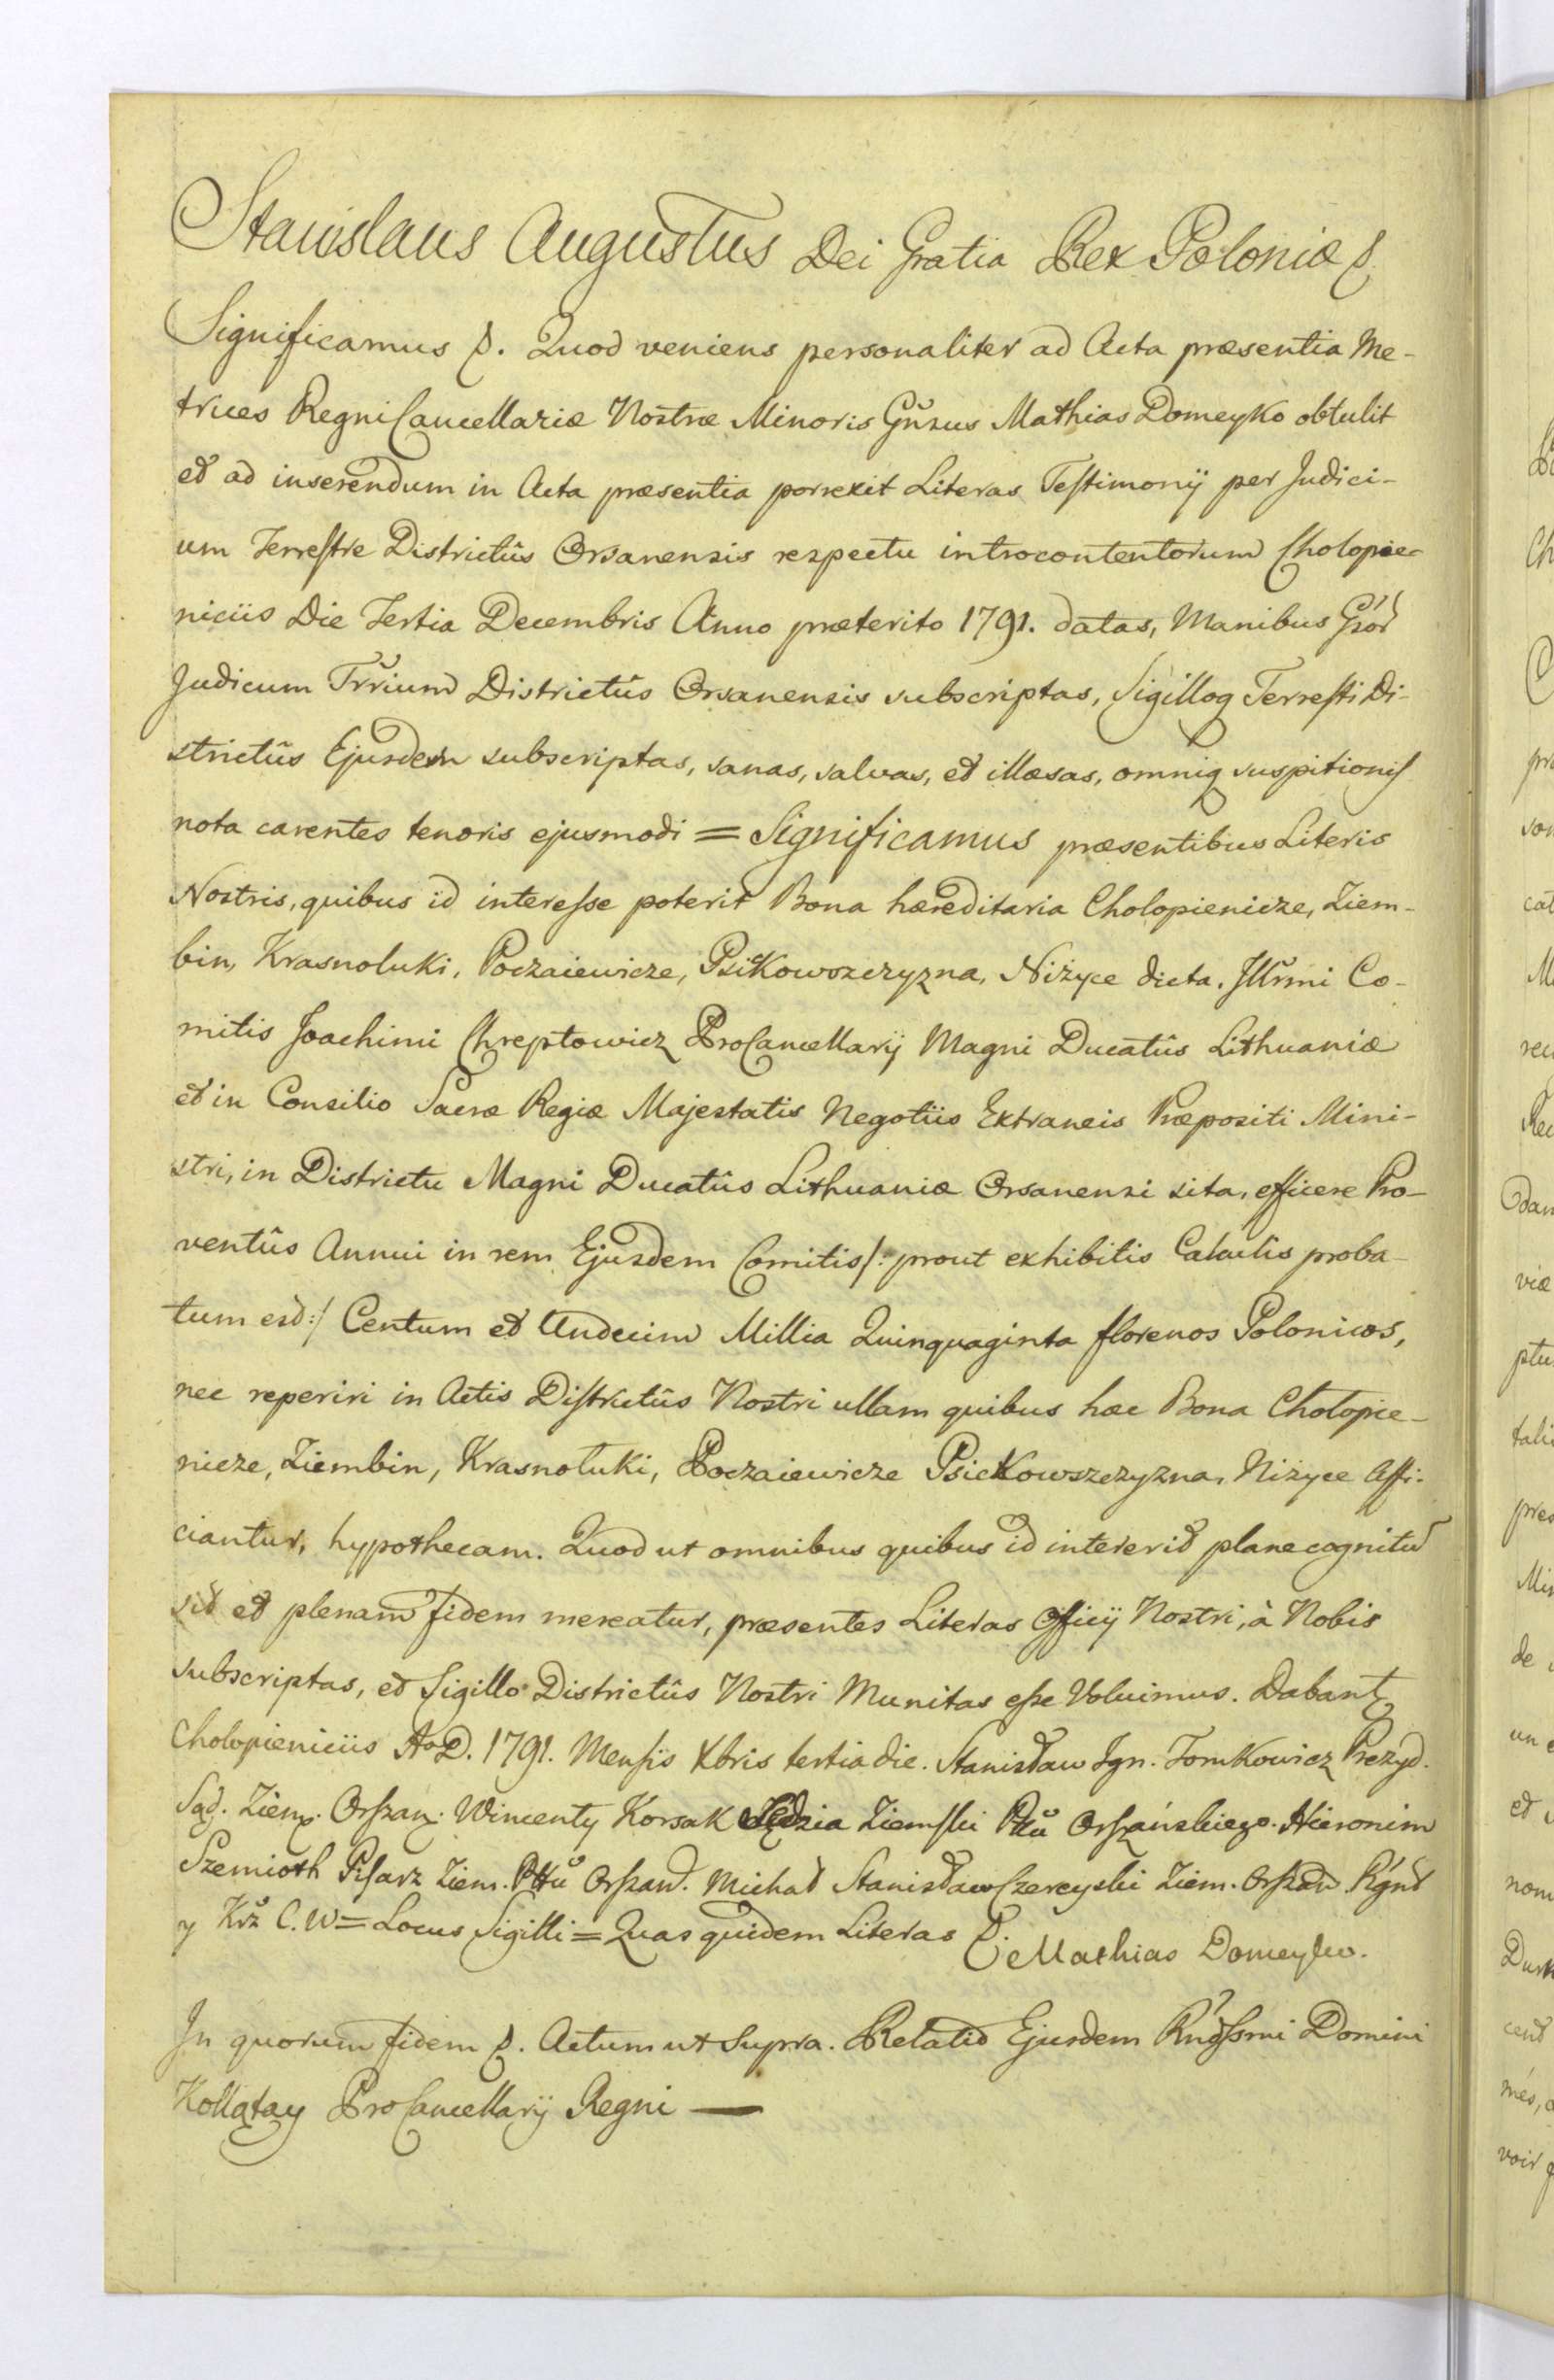 Stanislaus Augustus Dei Gratia Rex Poloniæ &.
Significamus &. Quod veniens personaliter ad Acta præsentia Me-
trices Regni Cancellariæ Nostræ Minoris Gnŭsus Mathias Domeyko obtulit
et ad inserendum in Acta præsentia porrexit Literas Testimonÿ per Judici-
um Terrestre Districtûs Orsanensis respectu introcontentorum Cholopie-
niciis Die Tertia Decembris Anno præterito 1791. datas, Manibus
Judicum Trr̃ium Districtûs Orsanensis subscriptas, Sigilloq Terresti Di-
strictûs Ejusdem subscriptas, sanas, salvas, et illæsas, omniq suspitionis
nota carentes tenoris ejusmodi = Significamus præsentibus Literis
Nostris, quibus id interesse poterit Bona hæreditaria Cholopienicze, Ziem-
bin, Krasnoluki, Poczaiewicze, Psikowszczyzna, Niżyce dicta. Jllr̃mi Co-
mitis Joachimi Chreptowicz ProCancellarÿ Magni Ducatûs Lithuaniæ
et in Consilio Sacræ Regiæ Majestatis Negotiis Extraneis Præpositi Mini-
stri, in Districtu Magni Ducatûs Lithuaniæ Orsanensi sita, efficere Pro-
ventûs Annui in rem Ejusdem Comitis /: prout exhibitis Calculis proba-
tum est :/ Centum et Undecim Millia Quinquaginta florenos Polonicos,
nec reperiri in Actis Districtûs Nostri ullam quibus hæc Bona Cholopie-
nicze, Ziembin, Krasnoluki, Poczaiewicze Psickowszczyzna, Niżyce Affi-
ciantur, hypothecam. Quod ut omnibus quibus id intererit plane cognitu
sit et plenam fidem mereatur, præsentes Literas Officÿ Nostri, à Nobis
subscriptas, et Sigillo Districtûs Nostri Munitas esse Voluimus. Dabant
Cholopieniciis Ao D. 1791. Mensis Xbris tertia die. Stanisław Jgn. Tomkowicz Prezyd.
Sąd. Ziem. Orszan. Wincenty Korsak Sędzia Ziemski Pttŭ Orszańskiego. Hieronim
Szemioth Pisarz Ziem. Pttŭ Orszań. Michał Stanisław Czereyski Ziem. Orszań Rgnt
y Krz C. W = Locus Sigilli = Quas quidem Literas &. Mathias Domeyko.
In quorum fidem &. Actum ut Supra. Relatio Ejusdem Rndssmi Domini
Kollątay ProCancellarÿ Regni —